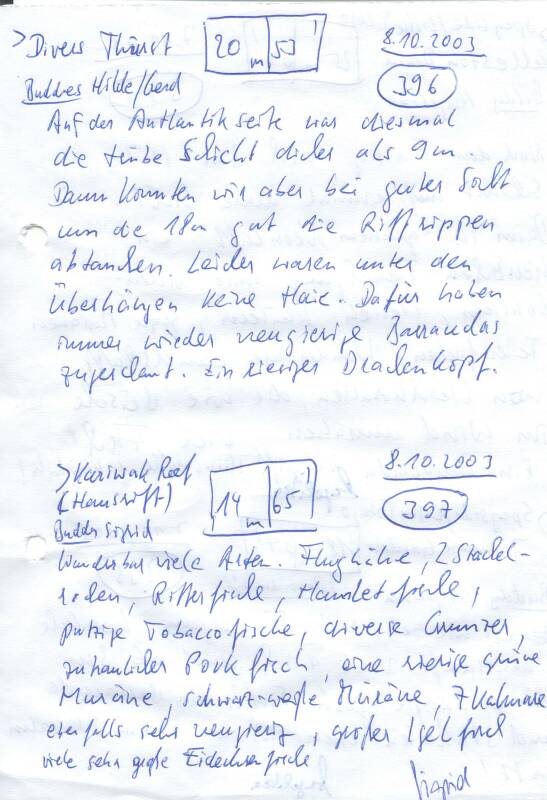 > Divers Thirst 20 m 53' 8.10.2003
Buddies Hilde/Gerd 396
Auf der Antlantikseite war diesmal
die trübe Schicht dicker als 9m
Dann konnten wir aber bei guter Sicht
um die 18m gut die Riffrippen
abtauchen. Leider waren unter den
Überhängen keine Haie. Dafür haben
immer wieder neugierige Barracudas
zugeschaut. Ein riesiger Drachenkopf.
> Kariwak Reef 14 m 65' 8.10.2003
(Hausriff) 397
Buddie Sigrid
Wunderbar viele Arten. Flughähne, 2 Stachel-
rochen, Ritterfische, Hamletfische,
putzige Tobaccofische, diverse Grunzer,
zutraulicher Porkfisch, eine riesige grüne
Muräne, schwarz-weiße Muräne, 7 Kalmare
ebenfalls sehr neugierig, großer Igelfisch
viele sehr große Eidechsenfische
Sigrid